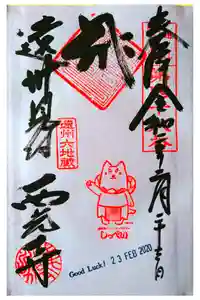 奉拝 令和二年二月二十三日
遠州見付 西光寺
遠州六地蔵
しっぺい
Good Luck! 23 FEB 2020